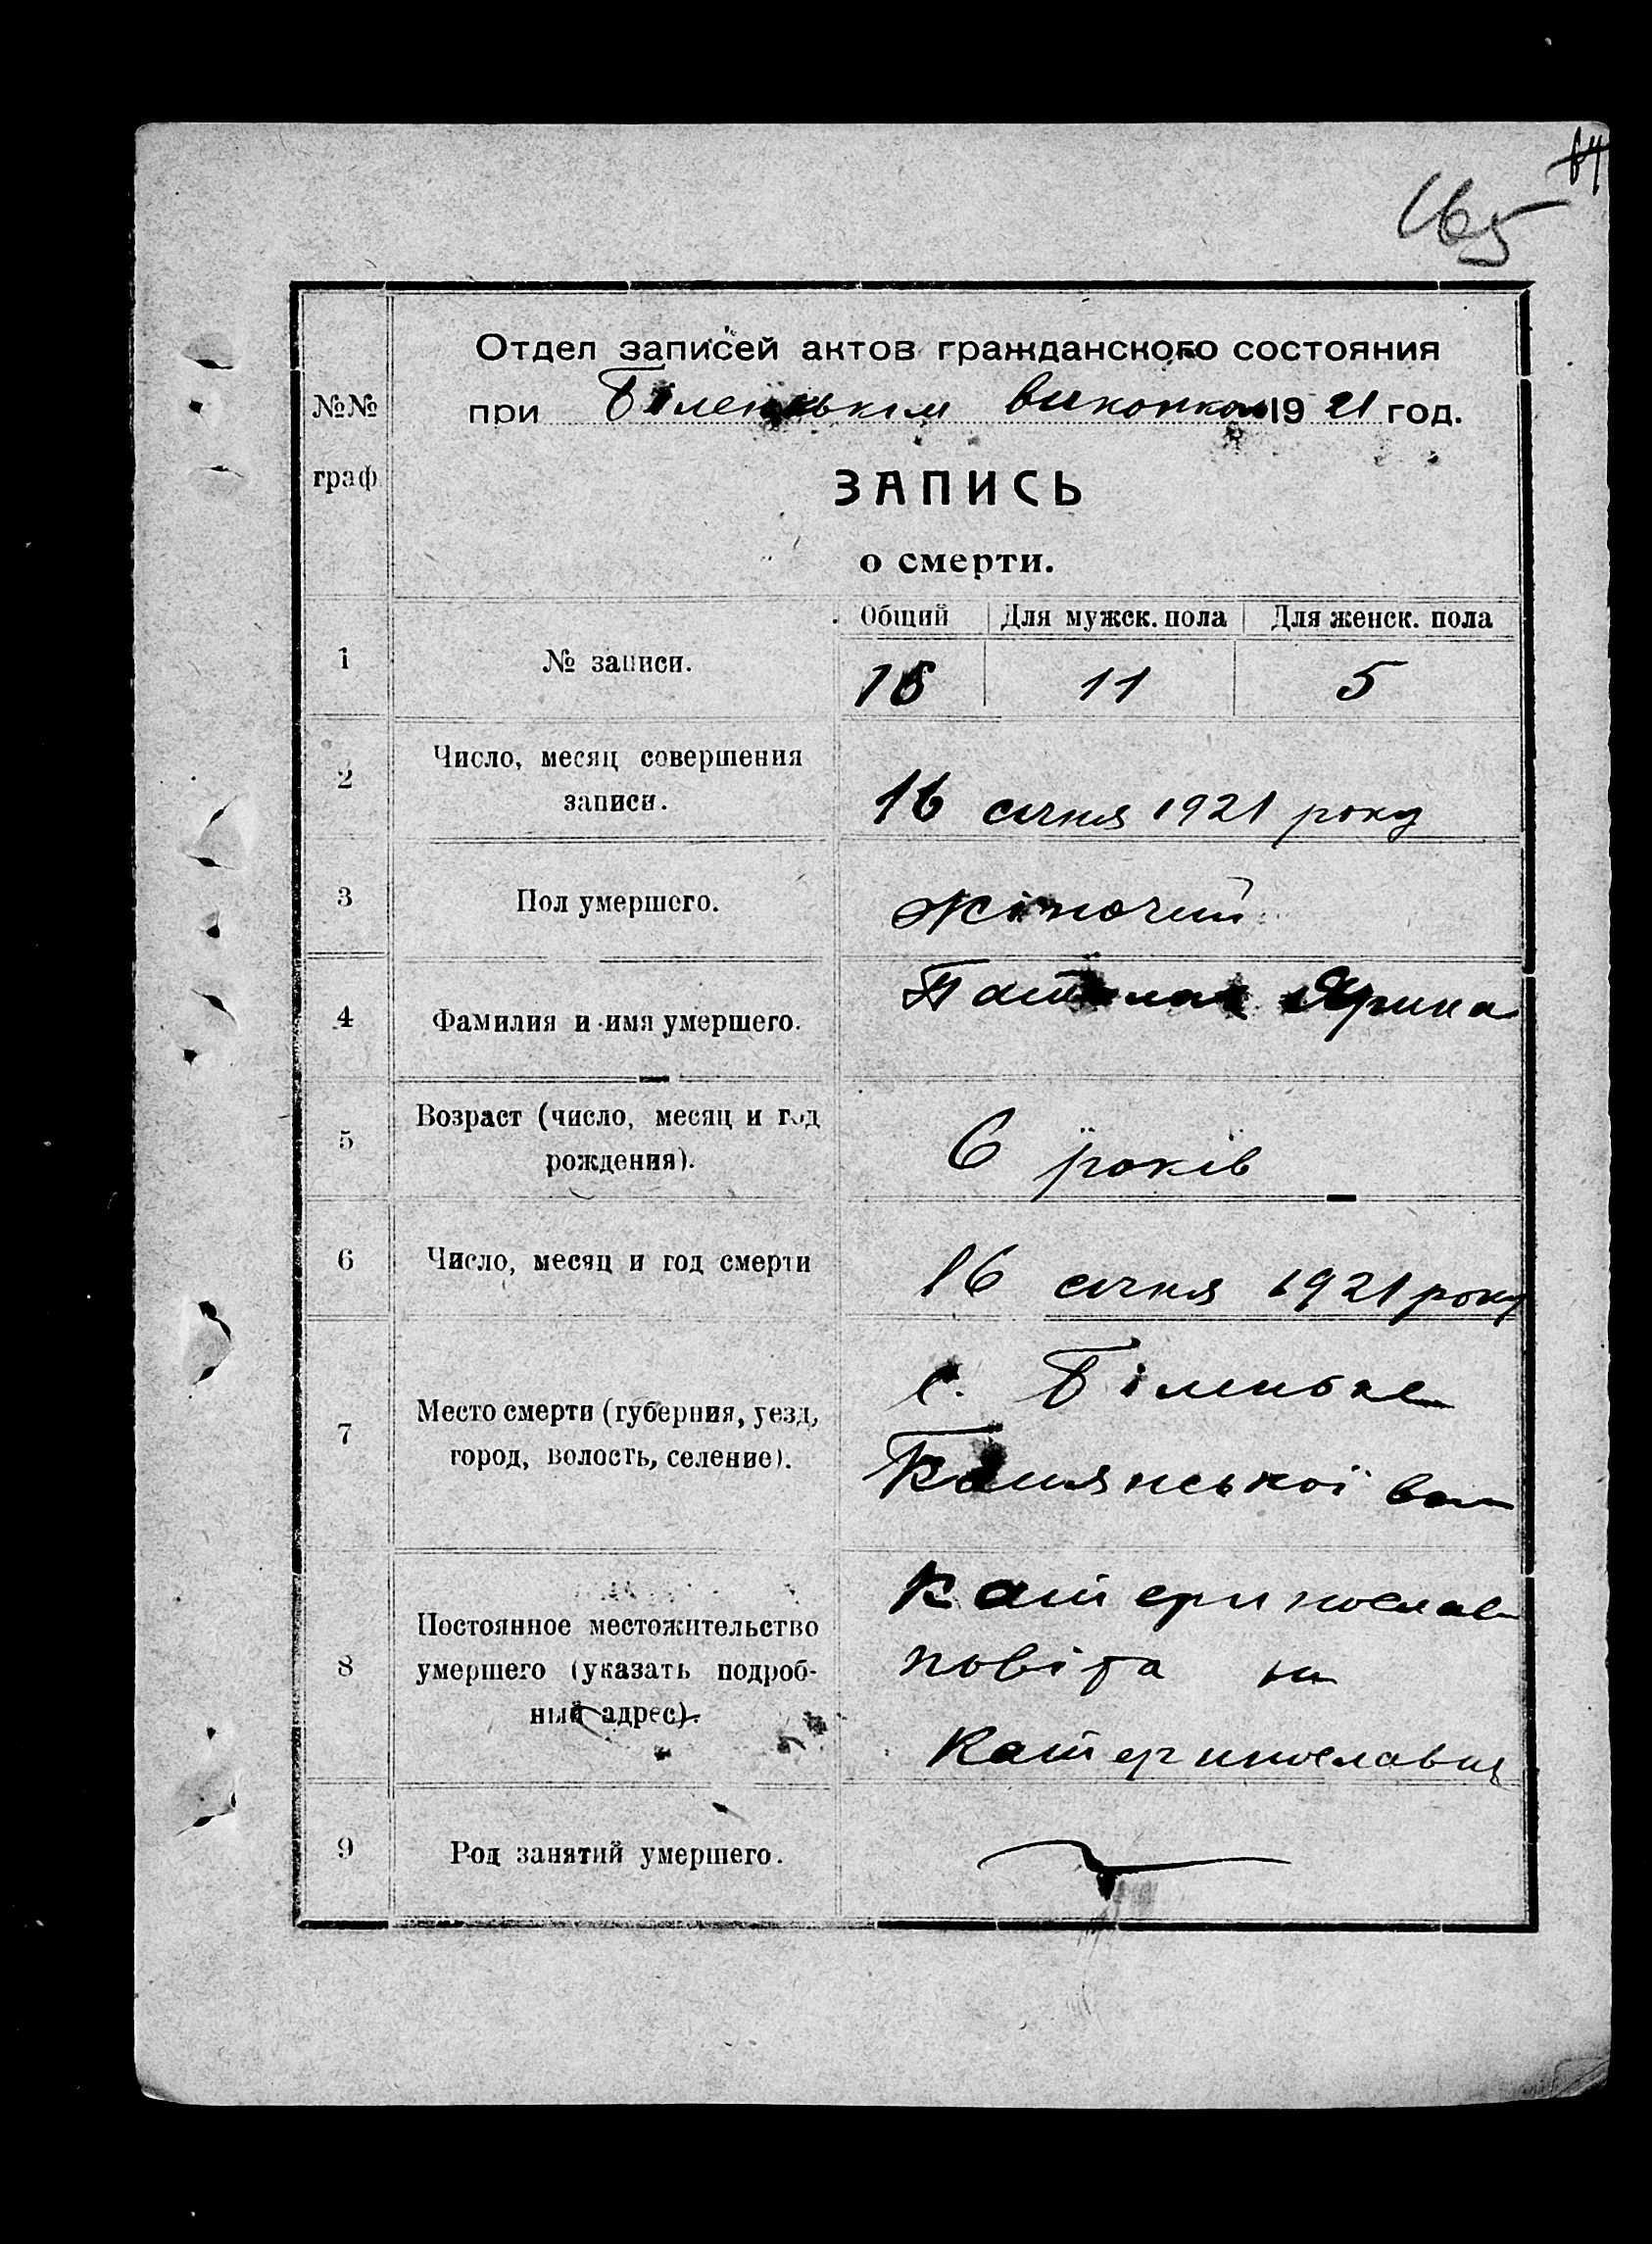 165
Отдел записей актов гражданского состояния
при Біленьким виконком 1921 год.
№№
граф
ЗАПИСЬ
о смерти.
Общий Для мужск. пола Для женск. пола
1 № записи. 16 11 5
2 Число, месяц совершения
записи. 16 січня 1921 року
3 Пол умершего. жіночий
4 Фамилия и имя умершего. Ярина
5 Возраст (число, месяц и год
рождения). 6 років
6 Число, месяц и год смерти 16 січня 1921 року
7 Место смерти (губерния, уезд,
город, волость, селение).
с. Біленьке
Камянської вол
8 Постоянное местожительство
умершего (указать подроб-
ный адрес).
Катеринослав
повіта
Катеринославщ
9 Род занятий умершего.